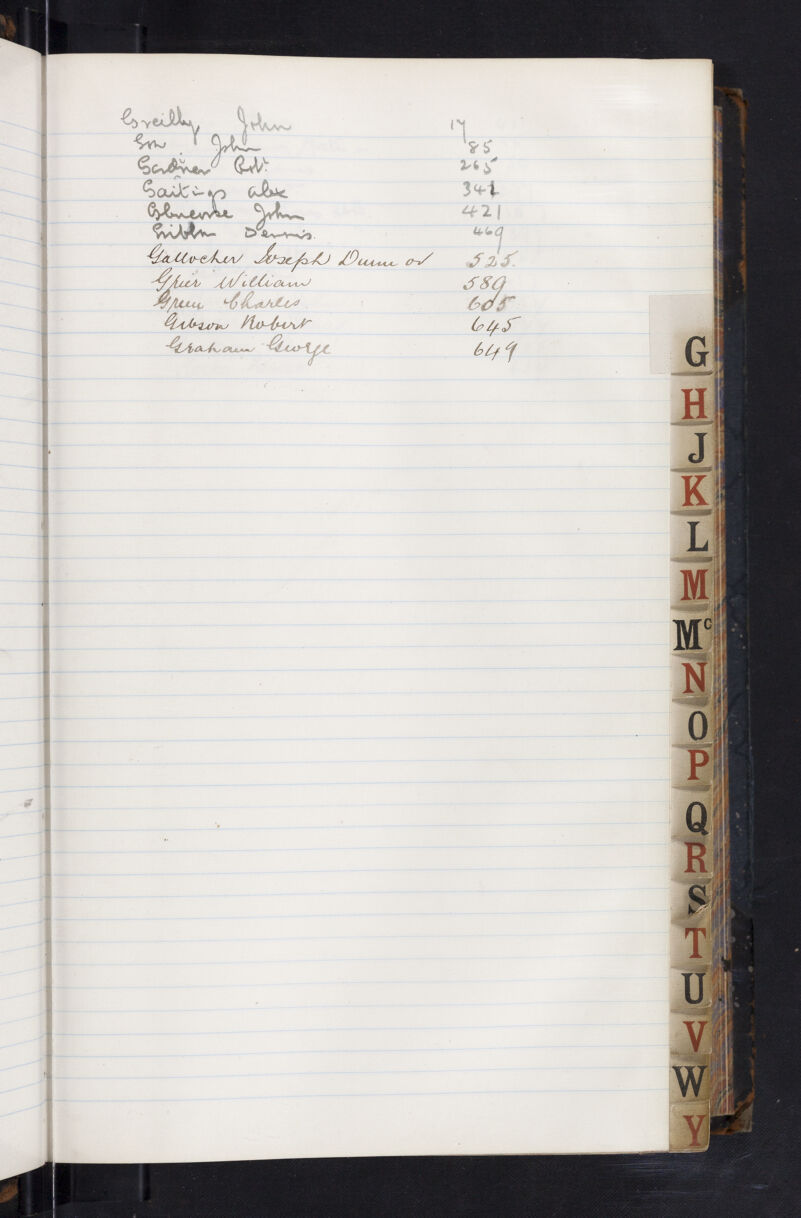 Greilly, John 17
John 85
Gardner Robt. 265
Gaitings Alex 341
Glencorse John 421
Gribbon Dennis. 469
Gallocher Joseph Dunn or 525.
Grier William 589
Green Charles 605
Gibson Robert 645
Graham George 649
G
H
J
K
L
M
Mc
N
O
P
Q
R
S
T
U
V
W
Y